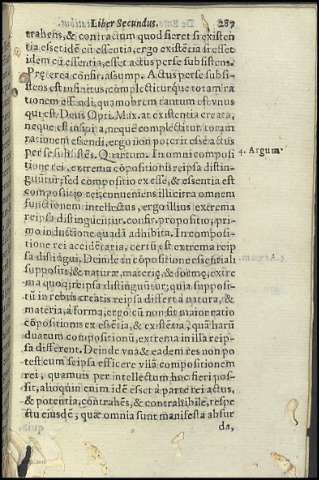 Liber Secundus. 289
trahens, & contractum quod fieret si existen
tia eset idē cū essentia, ergo existētia si esset
idem cū essentia, esset actus perse subsistens.
Præterea cōfir. assump. Actus perse subsi-
stens est infinitus, complectiturque totam ra
tionem essendi, quamobrem tantum est vnus
qui est Deus Opti. Max. at existentia creata,
neque est infinita, neque complectitur totam
rationem essendi, ergo non poterit esse actus
per se subsistēs. Quartum. In omni composi
4. Argum.
tione rei, extrema cōpositionis reipsa distin-
guūtur, sed compositio ex esse, & essentia est
compositio rei, conueniens illi citra omnem
functionem intellectus, ergo illius extrema
reipsa distinguentur. confir. propositio, pri-
mo inductione quadā adhibita. In composi-
tione rei accidētaria, certū est extrema reip
sa distīgui, Deinde in cōpositione essentiali
suppositi, & naturæ, materię, & formę, extre
ma quoque reipsa distinguūtur, quia supposi-
tū in rebus creatis reipsa differt à natura, &
materia, à forma, ergo cū non sit maior ratio
cōpositionis ex essētia, & existētia, quā harū
duatum compositionū, extrema in illa reip-
sa different. Deinde vna & eadem res non po
test cum seipsa efficere vllā compositionem
rei, quamuis per intellectum hoc fieri pos-
sit, alioqui enim idē esset à parte rei actus,
& potentia, contrahēs, & contrahibile, respe
ctu eiusdē, quæ omnia sunt manifesta absur
da,